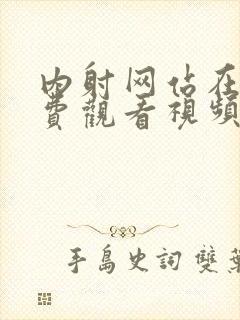 内射网估在
费觀看視頻
手島史詞 雙葉